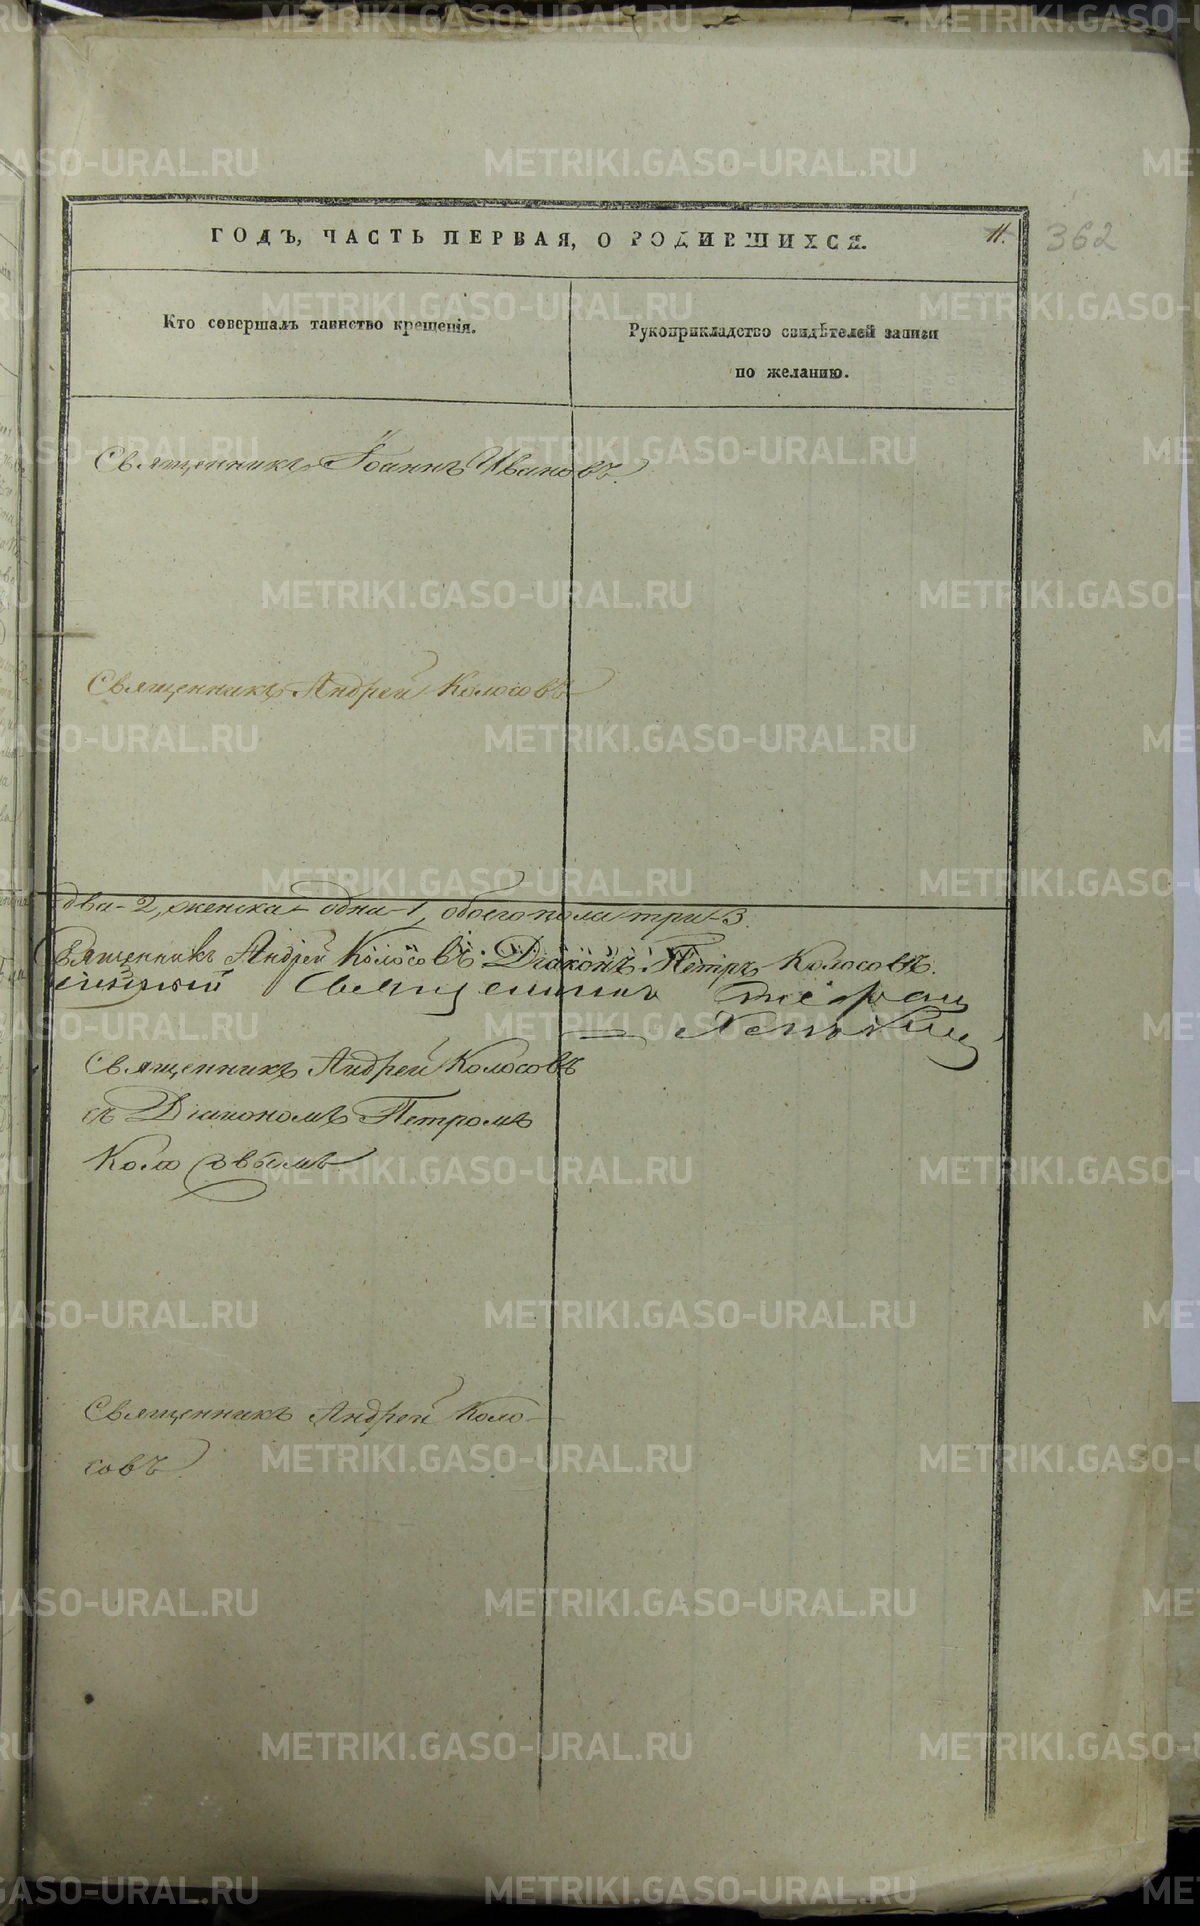 ГОДЪ, ЧАСТЬ ПЕРВАЯ, О РОДИВШИХСЯ. 11. 362
Кто совершалъ таинство крещенія.
Рукоприкладство свидѣтелей записи
по желанію.
Священникъ Іоаннъ Ивановъ.
Священникъ Андрей Колосовъ
два - 2, женска - одна - 1, обоего пола три - 3.
Священникъ Андрей Колосовъ. Діаконъ Петръ Колосовъ.
Священникъ
Священникъ Андрей Колосовъ
съ Діакономъ Петромъ
Колосовымъ
Священникъ Андрей Коло-
совъ.
METRIKI.GASO-URAL.RU